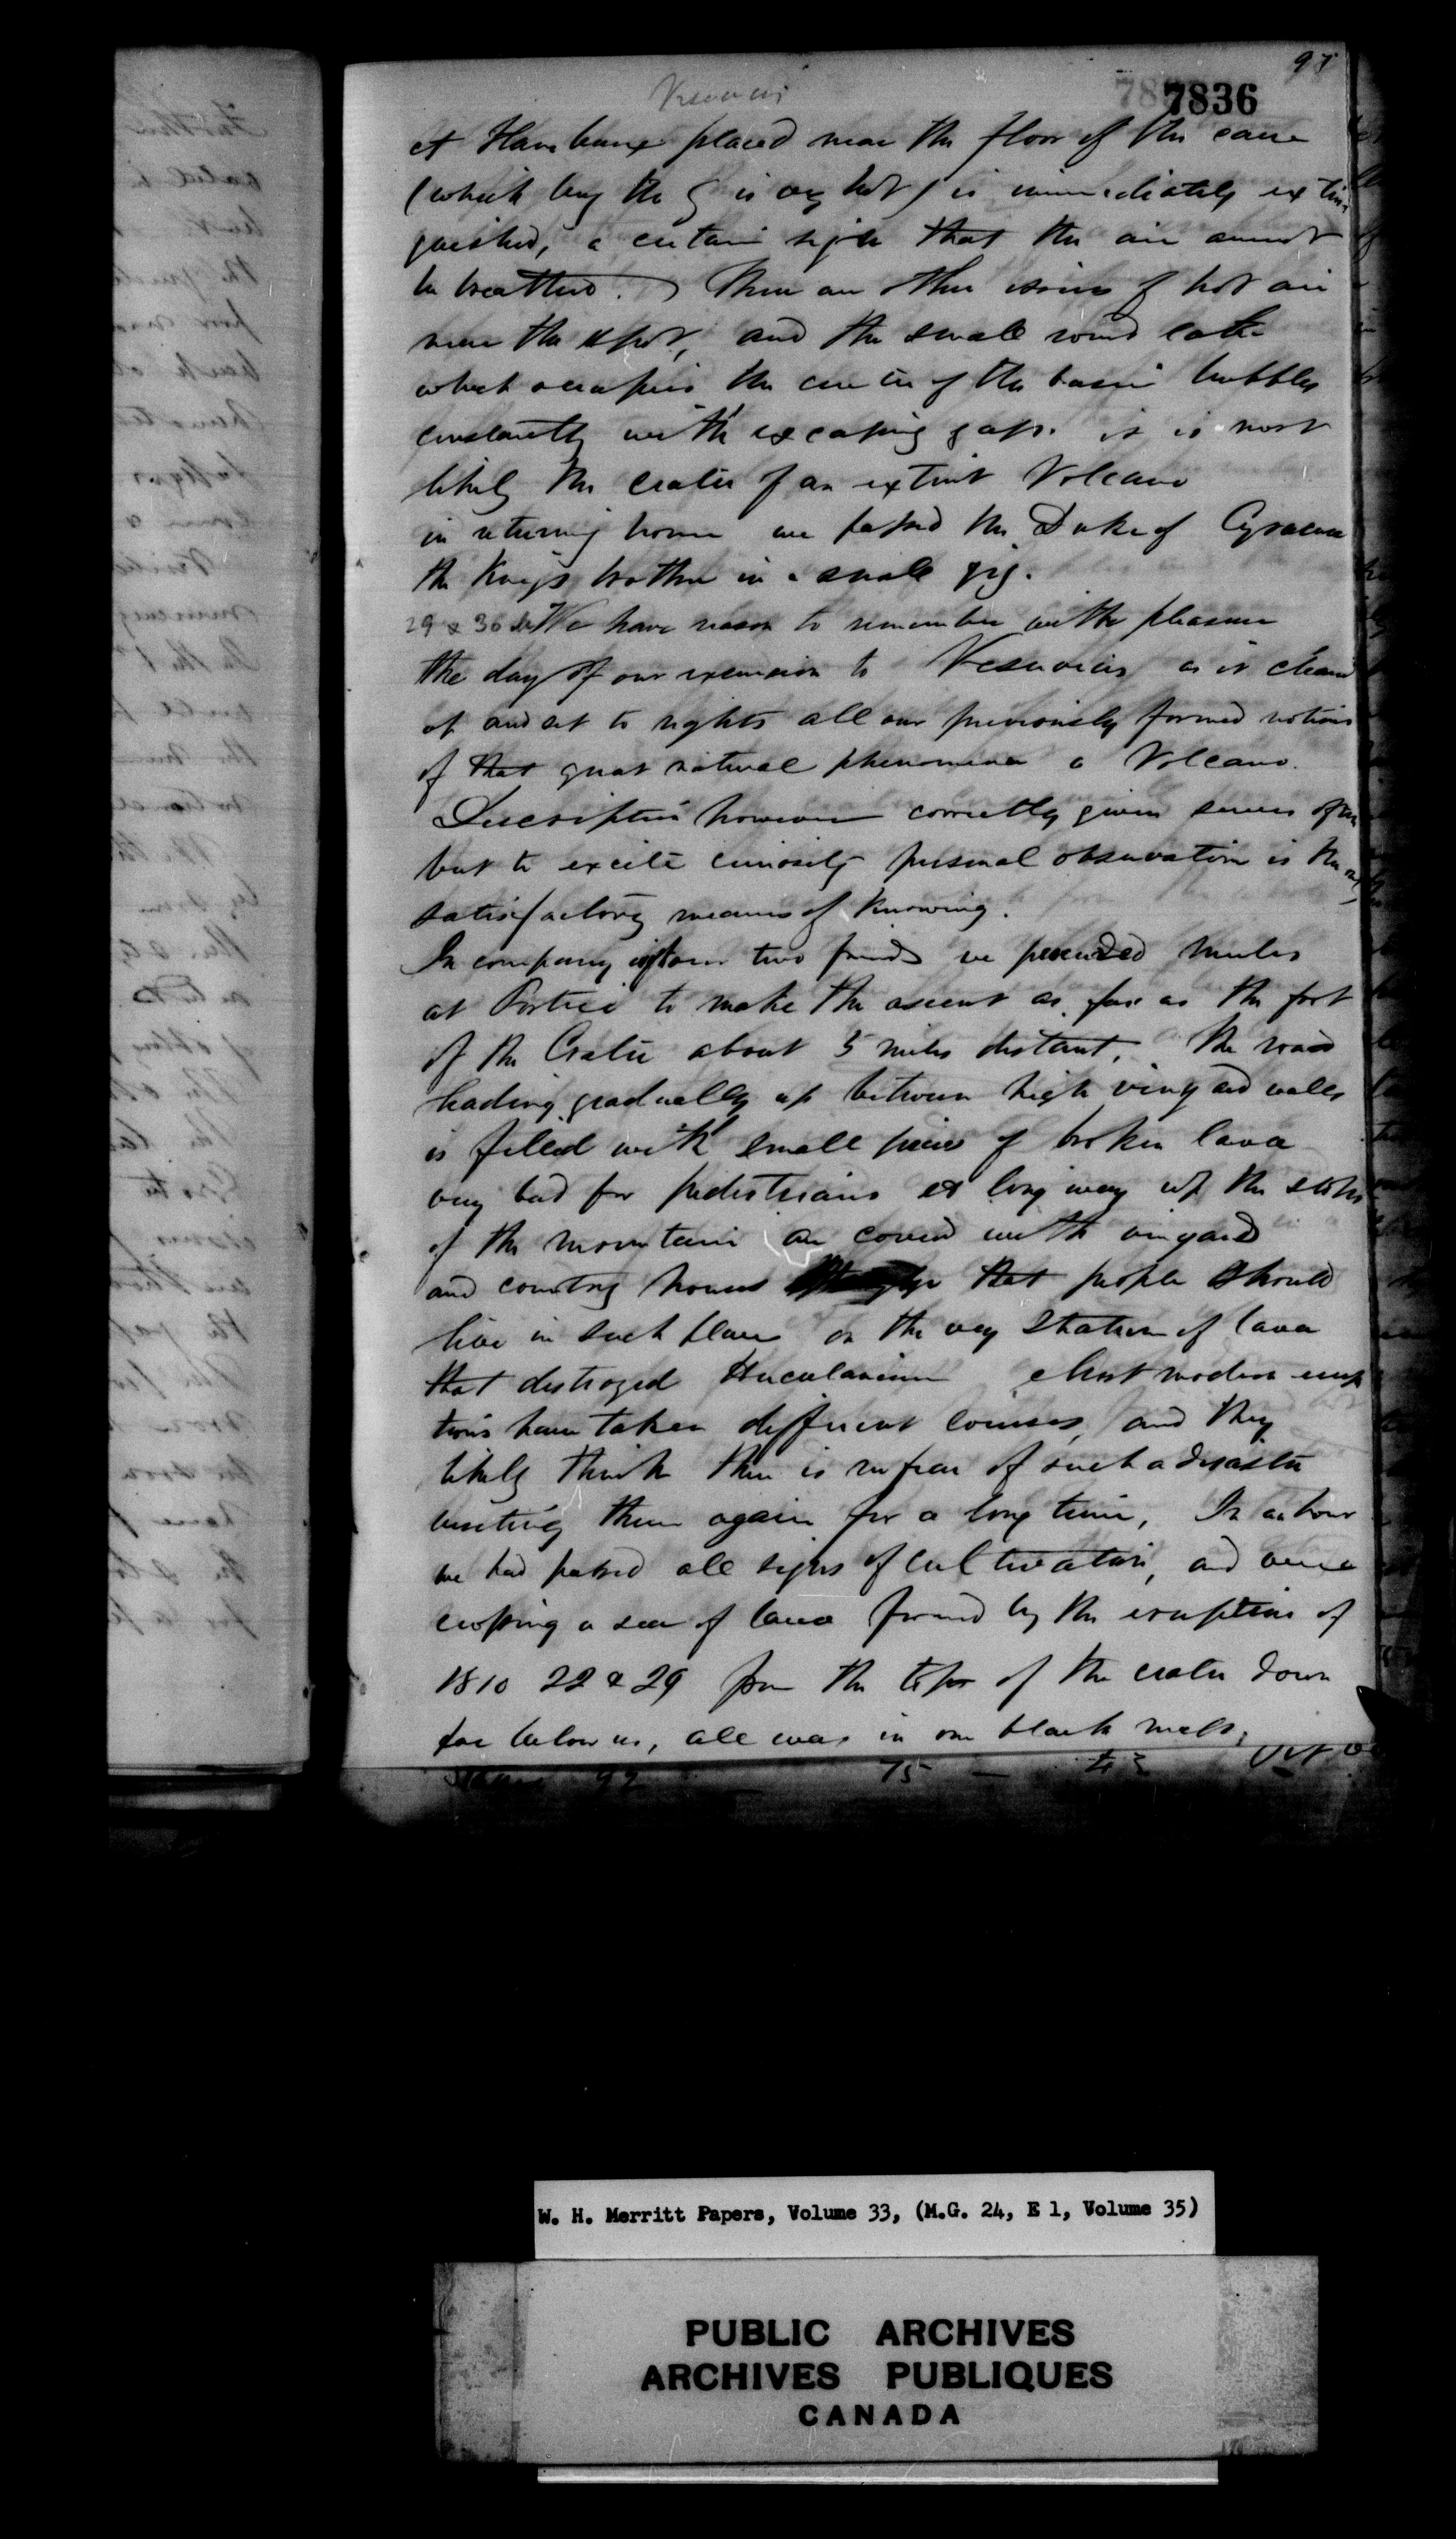 Vesuvius
7836
A Flambeaux placed near the floor of the cave
(which by the is very hot) is immediately extin
guished, a certain sign that the air cannot
be breathed. There are other issues of hot air
near the spot, and the small round lake
which occupies the centre of the basin bubbles
constantly with escaping gass. it is most
likely the crater of an extinct Volcano
in returning home we passed the Duke of
the Kings brother in a small gig.
29 & 30 We have reason to remember with pleasure
the day of our excursion to Vesuvius as it cleared
up and set to rights all our previously formed notions
of that great natural phenomena a Volcano.
Description however correctly given serves
but to excite curiosity personal observation is the
satisfactory means of knowing.
In company with our two friends we procured mules
at Portici to make the ascent as far as the foot
of the Crater about 5 miles distant. The road
leading gradually up between high vineyard walls
is filled with small pieces of broken lava
very bad for pedestrians a long way up the sides
of the mountain are covered with vineyards
and country houses strange that people should
live in such places on the very stratum of lava
that destroyed Herculaneum Most modern erup
tions have taken different courses, and they
likely think there is no fear of such a disaster
visiting them again for a long time, In an hour
we had passed all signs of cultivation, and were
crossing a sea of lava formed by the eruptions of
1810 22 & 29 from the top of the crater down
far below us, all was in one black mass,
75 —
W. H. Merritt Papers, Volume 33, (M.G. 24, E 1, Volume 35)
PUBLIC ARCHIVES
ARCHIVES PUBLIQUES
CANADA